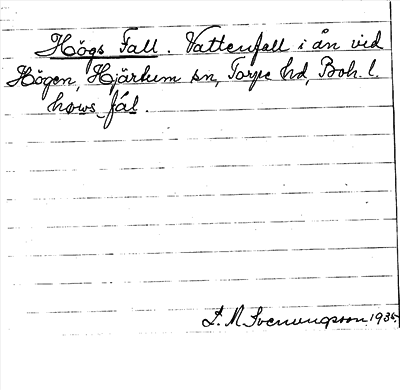 Högs Fall. Vattenfall i ån vid
Högen, Hjärtum sn, Torpe hd, Boh. l.
hows fål.
S. M. Svenungsson 1935.